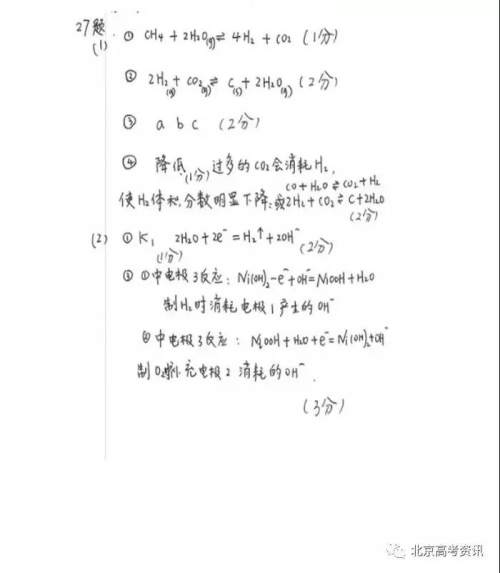 27题.
(1) ① CH4 + 2H2O(g) ⇌ 4H2 + CO2 (1分)
② 2H2(g) + CO2(g) ⇌ C(s) + 2H2O(g) (2分)
③ a b c (2分)
④ 降低(1分) 过多的CO2会消耗H2,
CO + H2O ⇌ CO2 + H2
使H2体积分数明显下降: 或2H2 + CO2 ⇌ C + 2H2O
(2分)
(2) ① K1 2H2O + 2e⁻ = H2↑ + 2OH⁻ (2分)
(1分)
② ①中电极3反应: Ni(OH)2 - e⁻ + OH⁻ = NiOOH + H2O
制H2时消耗电极1产生的OH⁻
②中电极3反应: NiOOH + H2O + e⁻ = Ni(OH)2 + OH⁻
制O2时补充电极2消耗的OH⁻.
(3分)
北京高考资讯